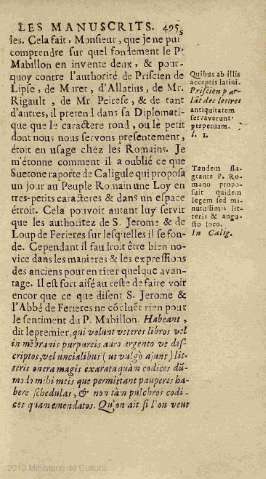 LES MANUSCRITS. 495
les. Cela fait, Monsieur, que je ne puis
comprendre sur quel fondement le P.
Mabillon en invente deux, & pour-
quoy contre l'authorité de Priscien de
Lipse, de Muret, d'Allatius, de Mr.
Rigault, de Mr Peiresc, & de tant
d'autres, il pretend dans sa Diplomati-
que que le caractere rond, ou le petit
dont nous nous servons presentement,
étoit en usage chez les Romains. Je
m'étonne comment il a oublié ce que
Suetone raporte de Caligule qui proposa
un jour au Peuple Romain une Loy en
tres-petits caracteres & dans un espace
étroit. Cela pouvoit autant luy servir
que les authoritez de S. Jerome & de
Loup de Ferieres sur lesquelles il se fon-
de. Cependant il faudroit être bien no-
vice dans les manieres & les expressions
des anciens pour en tirer quelque avan-
tage. Il est fort aisé au reste de faire voir
encor que ce que disent S. Jerome &
l'Abbé de Ferieres ne cõcluët rien pour
le sentiment du P. Mabillon. Habeant,
dit le premier, qui volunt veteres libros vel
in mẽbranis purpureis auro argento ve des-
criptos, vel uncialibus (ut vulgò ajunt) lit-
teris onera magis exarata quàm codices dũ-
modo mihi meis que permittant pauperes ha-
bere schedulas, & non tàm pulchros codi-
ces quàm emendatos. Qu'on ait si l'on veut
Quibus ab illis
acceptis latini.
Priscien par-
lãt des lettres
antiquitatem
servaverunt
perpetuam.
l. 1.
Tandem fla-
gitante P. Ro-
mano propo-
suit quidem
legem sed mi-
nutissimis lit-
teris & angu-
sto loco.
in Calig.